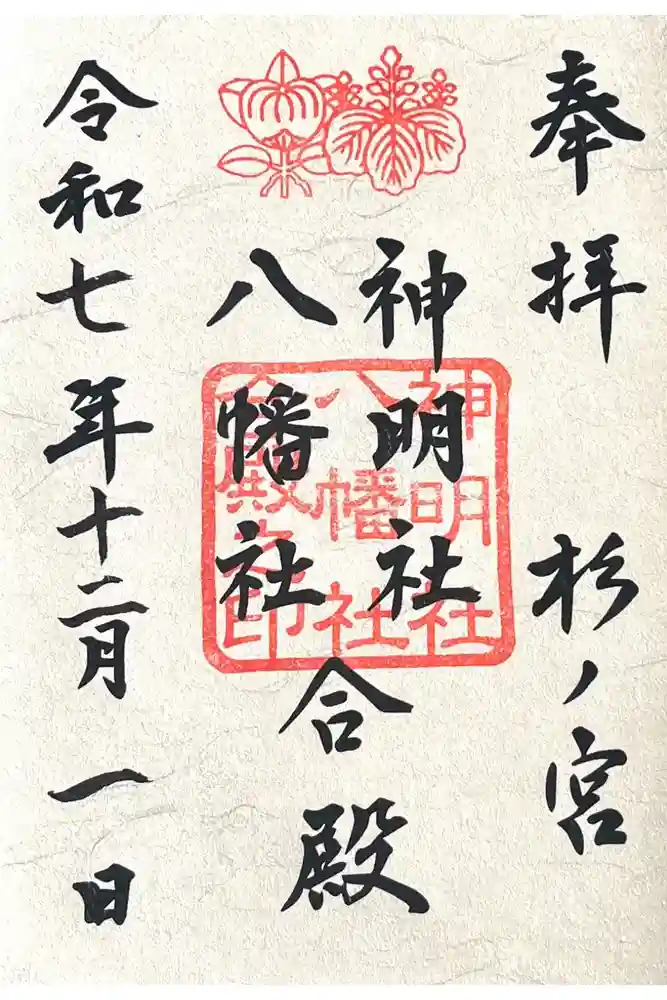 奉拝 杉ノ宮
神明社
八幡社
合殿
神明社
八幡社
合殿之印
令和七年十二月一日